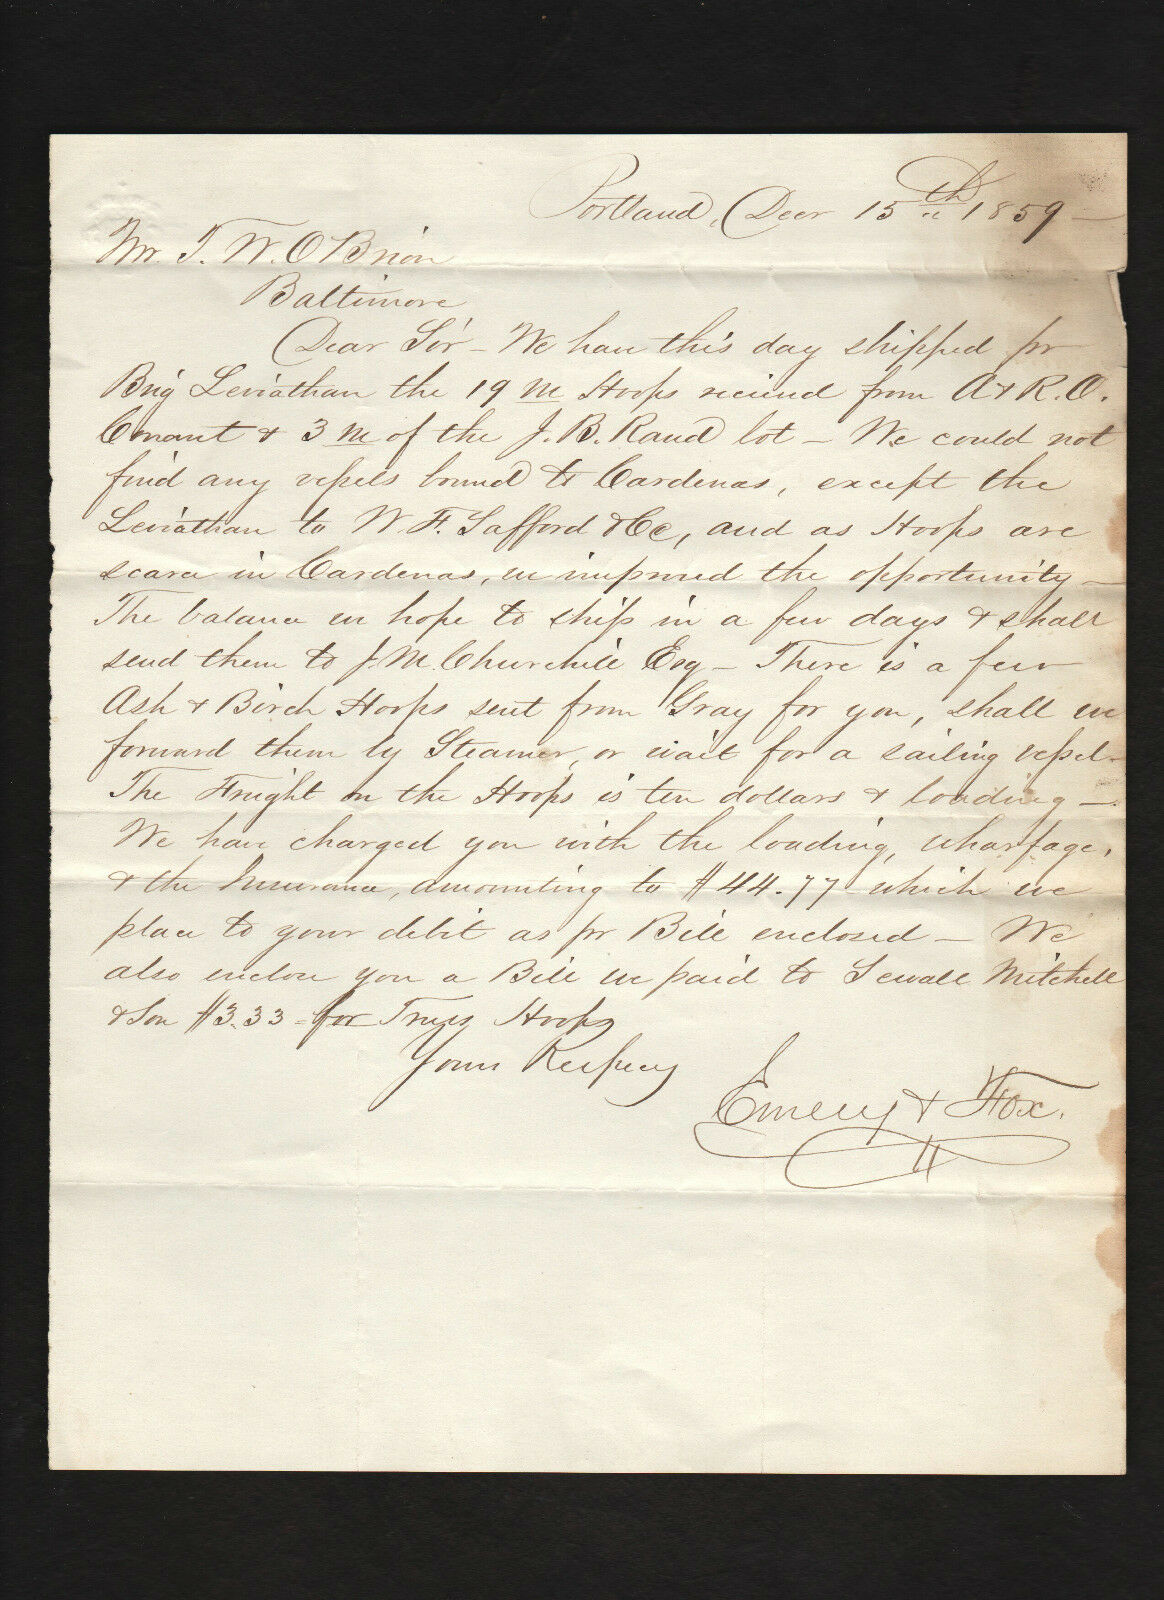 Portland, Decr 15th 1859 —
Mr. T. W. O'Brion
Baltimore
Dear Sir — We have this day shipped pr
Brig Leviathan the 19 M Hoops received from A & R. O.
Conant & 3 M of the J. B. Rand lot — We could not
find any vessels bound to Cardenas, except the
Leviathan to W. F. Safford & Co, and as Hoops are
scarce in Cardenas, we improved the opportunity —
The balance we hope to ship in a few days & shall
send them to J. M. Churchill Esq — There is a few
Ash & Birch Hoops sent from Gray for you, shall we
forward them by Steamer, or wait for a sailing vessel —
The Freight on the Hoops is ten dollars & loading —
We have charged you with the loading, wharfage,
& the Insurance, amounting to $44.77 which we
place to your debit as pr Bill enclosed — We
also enclose you a Bill we paid to Sewall Mitchell
& Son $3.33 for Truss Hoops
Yours Respecy
Emery & Fox.